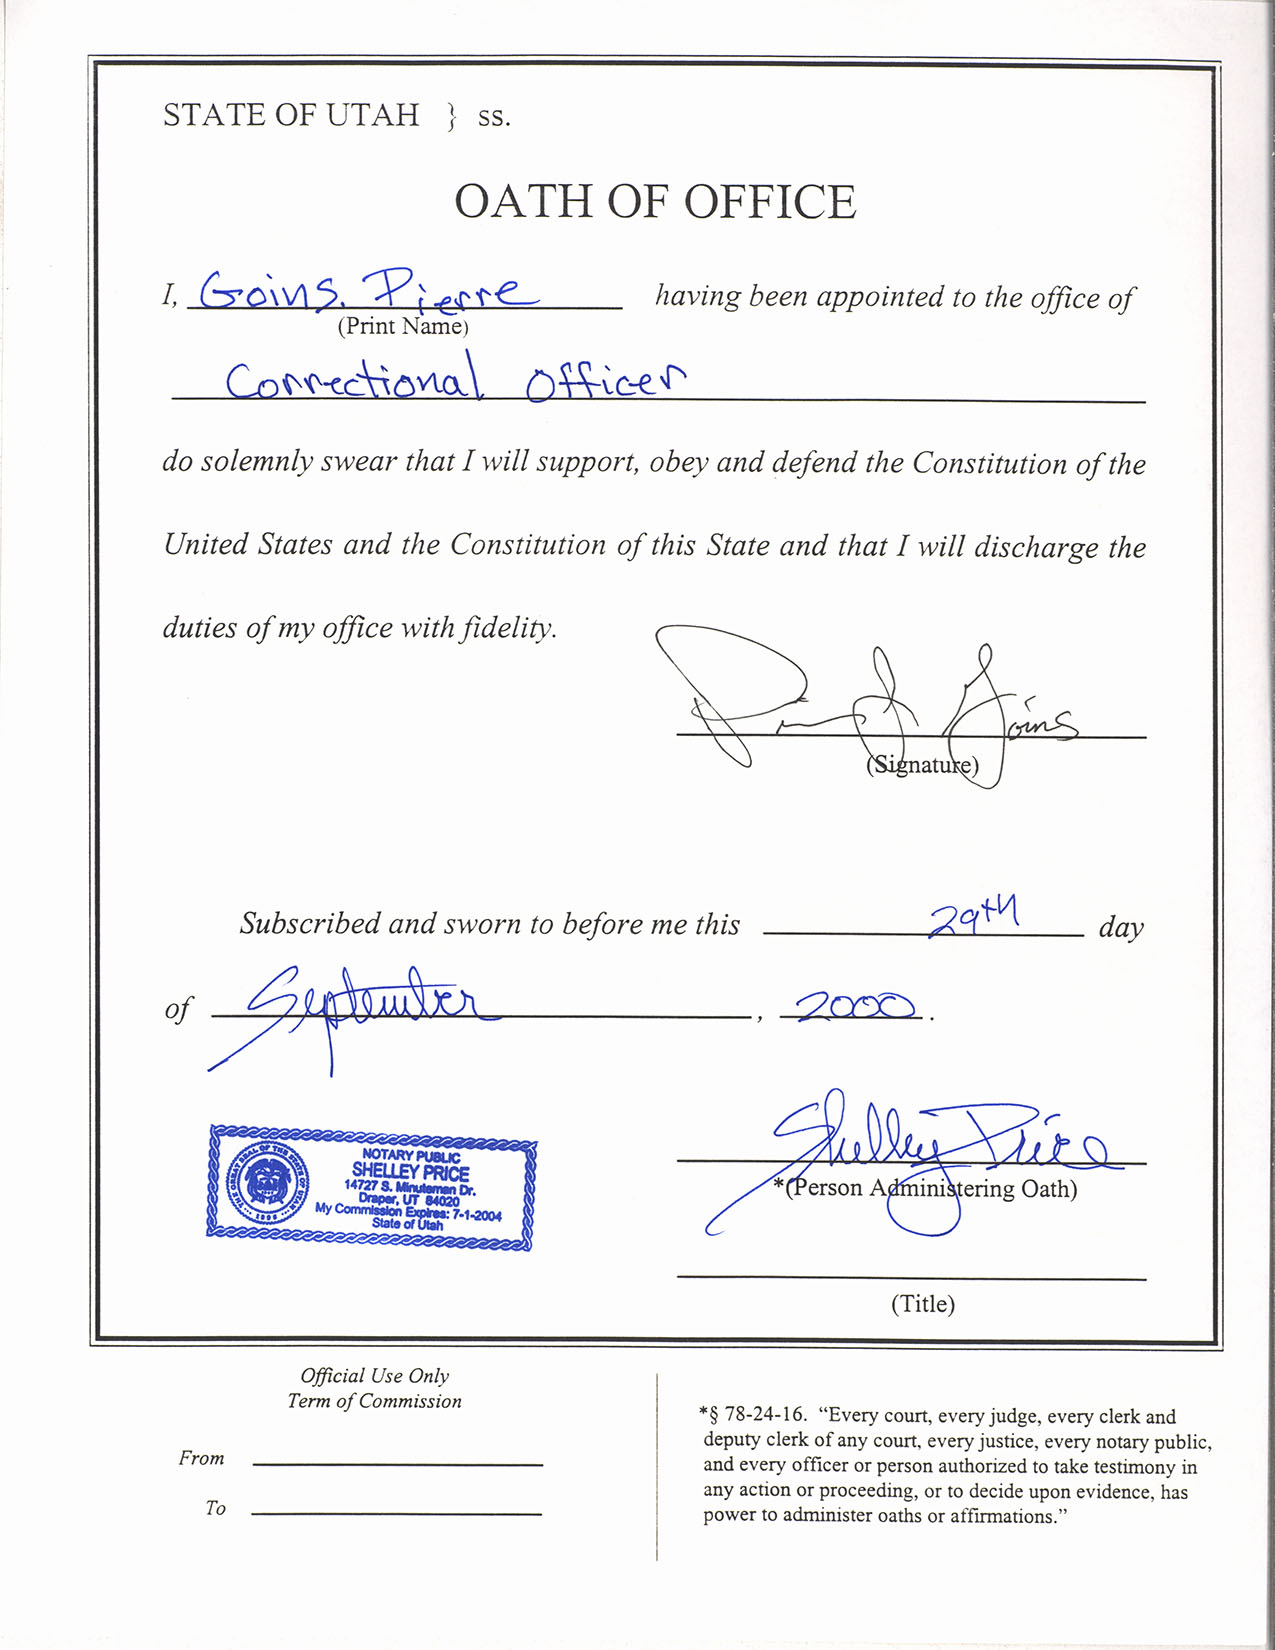 STATE OF UTAH } ss.
OATH OF OFFICE
I, Goins, Pierre having been appointed to the office of
(Print Name)
Correctional Officer
do solemnly swear that I will support, obey and defend the Constitution of the
United States and the Constitution of this State and that I will discharge the
duties of my office with fidelity.
Goins
(Signature)
Subscribed and sworn to before me this 29th day
of September, 2000.
THE GREAT SEAL OF THE STATE OF UTAH
1896
NOTARY PUBLIC
SHELLEY PRICE
14727 S. Minuteman Dr.
Draper, UT 84020
My Commission Expires: 7-1-2004
State of Utah
Shelley Price
*(Person Administering Oath)
(Title)
Official Use Only
Term of Commission
From
To
*§ 78-24-16. “Every court, every judge, every clerk and
deputy clerk of any court, every justice, every notary public,
and every officer or person authorized to take testimony in
any action or proceeding, or to decide upon evidence, has
power to administer oaths or affirmations.”